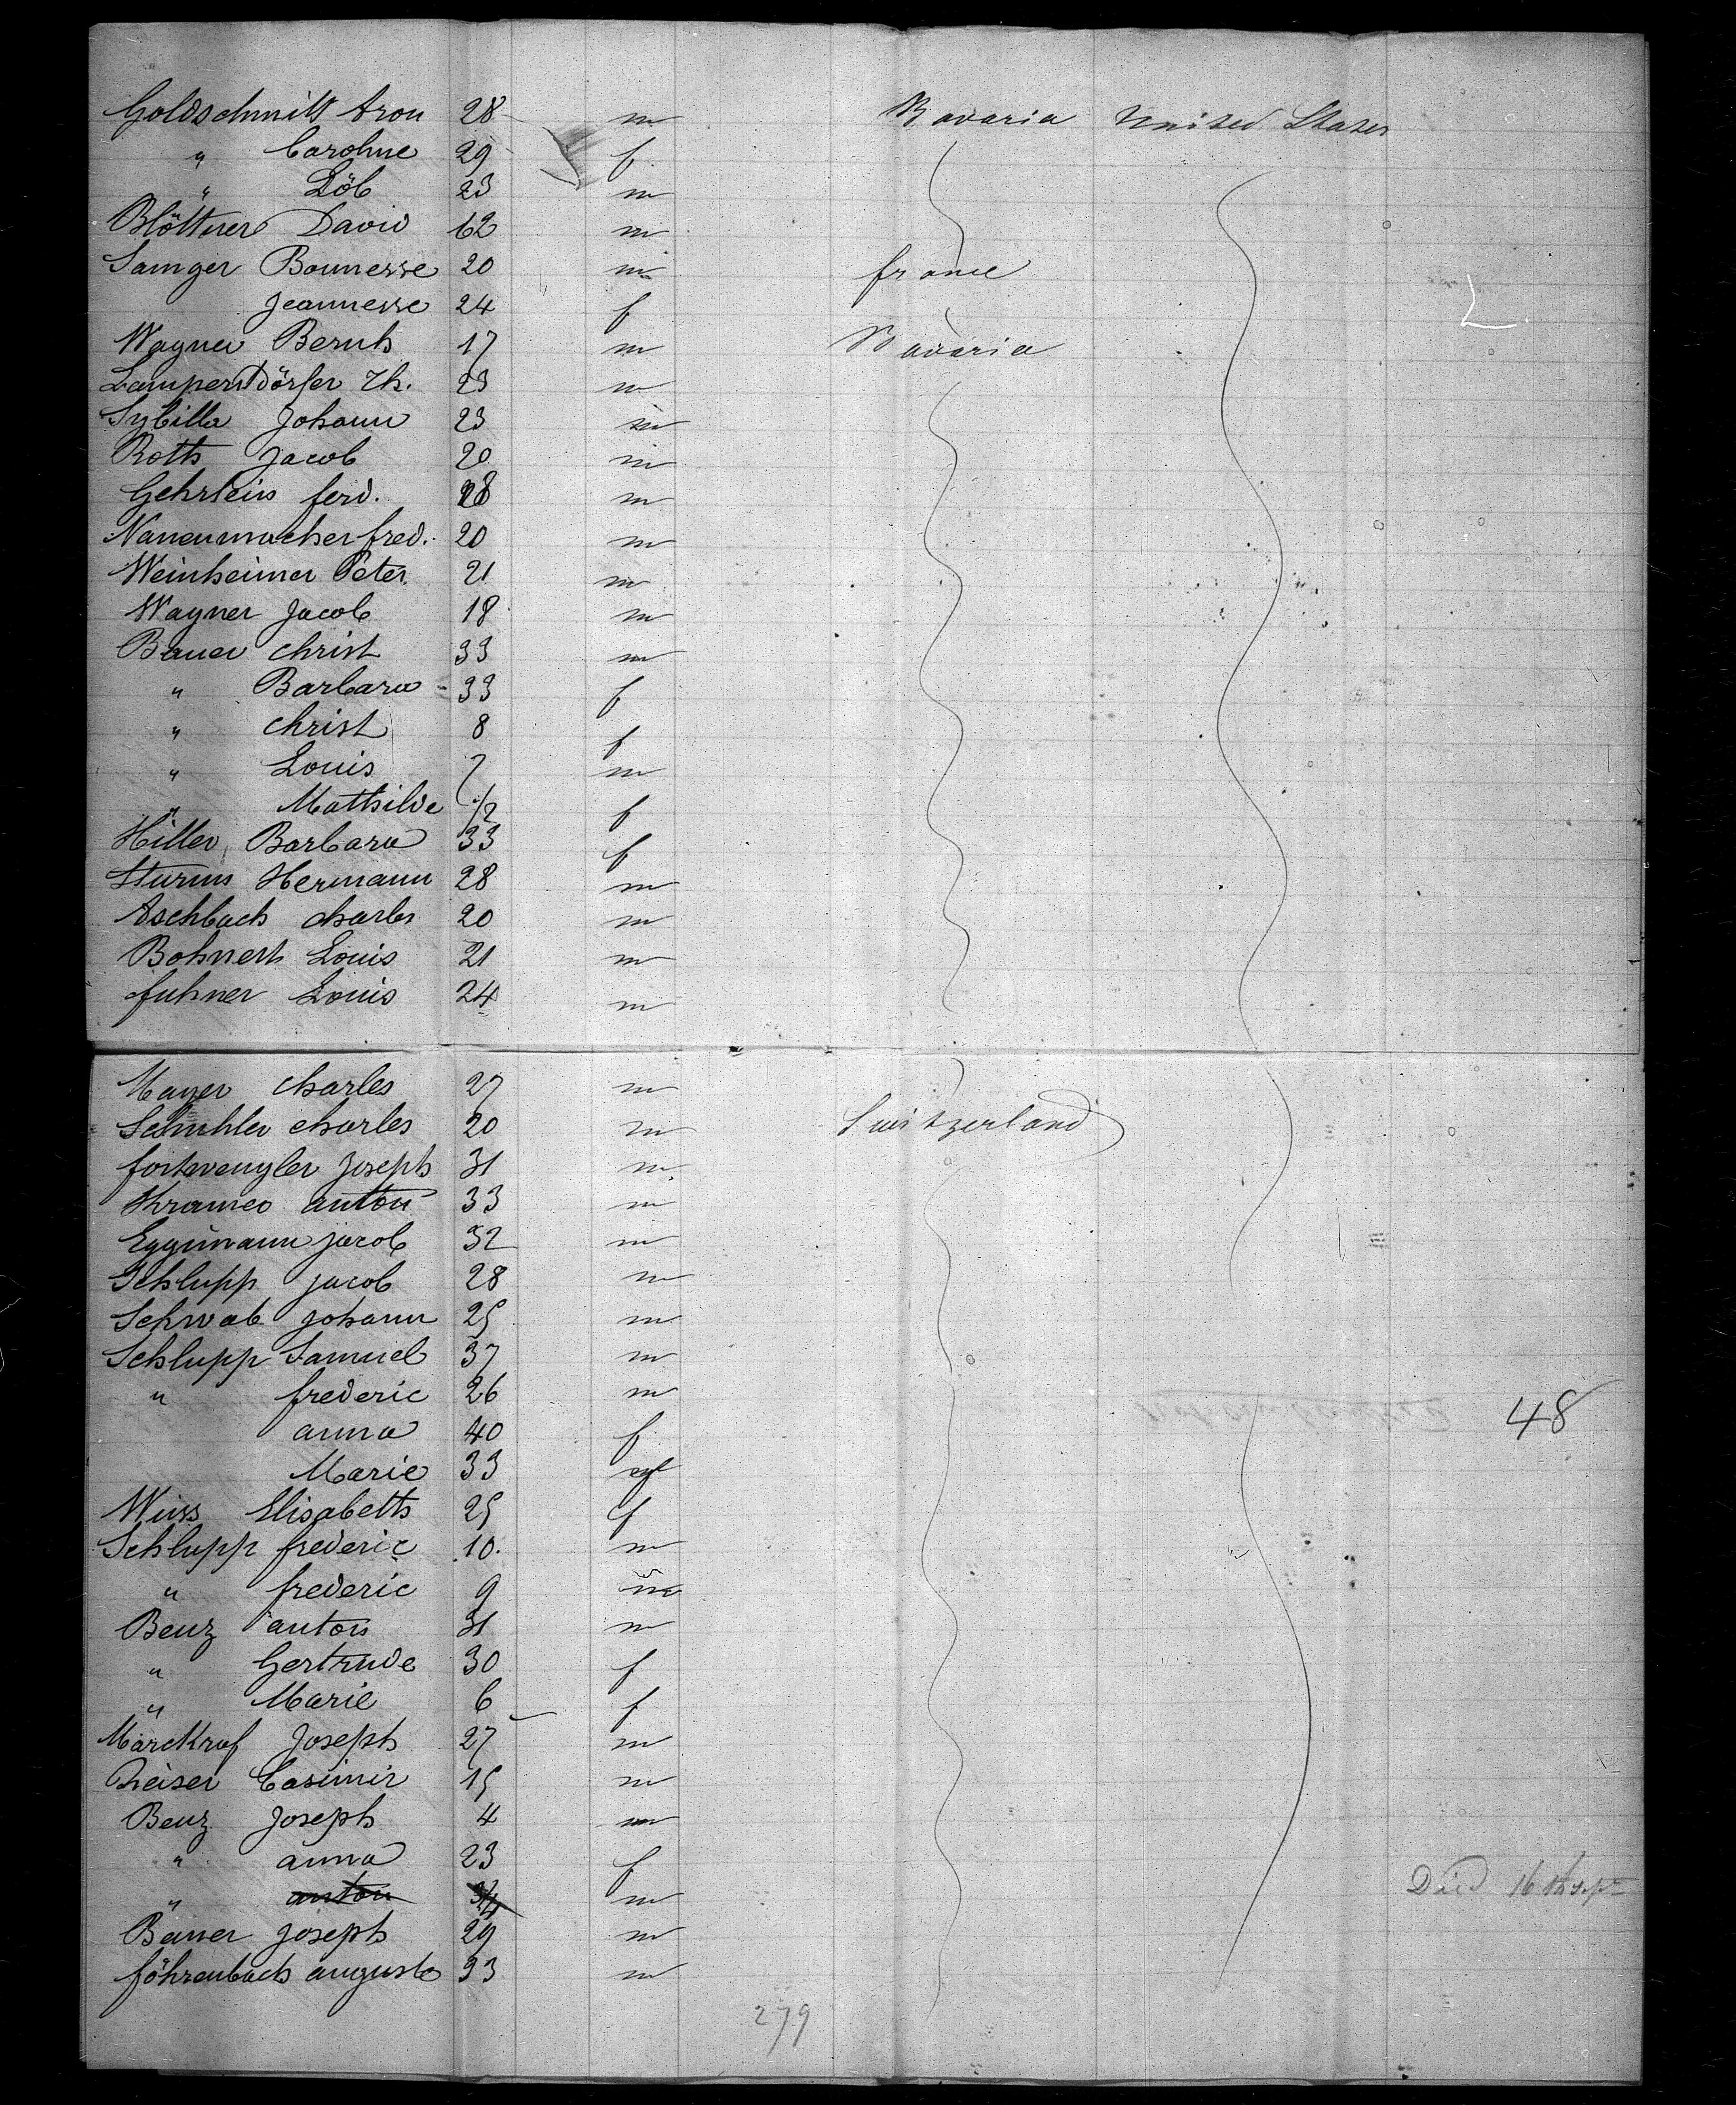 Goldschmitt Aron 28 m Bavaria United States
" Caroline 29 f
" Löb 23 m
Blöttner David 62 m
Samger Bonnesse 20 m france
Jeannesse 24 f
Wagner Bernh 17 m Bavaria
Lampersdörfer Th. 23 m
Sybilla Johann 23 m
Roth Jacob 20 m
Gehrlein ferd. 28 m
Nanenmacher fred. 20 m
Weinheimer Peter 21 m
Wagner Jacob 18 m
Bauer Christ 33 m
" Barbara 33 f
" Christ 8 f
" Louis 7 m
" Mathilde 1/2 f
Hiller Barbara 33 f
Sturm Hermann 28 m
Aschbach Charles 20 m
Bohnert Louis 21 m
fuhner Louis 24 m
Mayer Charles 27 m
Schuhler Charles 20 m Switzerland
fortwengler Joseph 31 m
Kramer anton 33 m
Eggimann jacob 32 m
Schlupp jacob 28 m
Schwab Johann 25 m
Schlupp Samuel 37 m
" frederic 26 m 48
anna 40 f
Marie 33 f
Weiss Elisabeth 25 f
Schlupp frederic 10. m
" frederic 9 m
Benz anton 31 m
" Gertrude 30 f
" Marie 6 f
Marckraf Joseph 27 m
Zeiser Casimir 15 m
Benz Joseph 4 m
" anna 23 f
" anton 3/4 m Died 16th Sept
Bauer Joseph 29 m
föhrenbach auguste 33 m
279